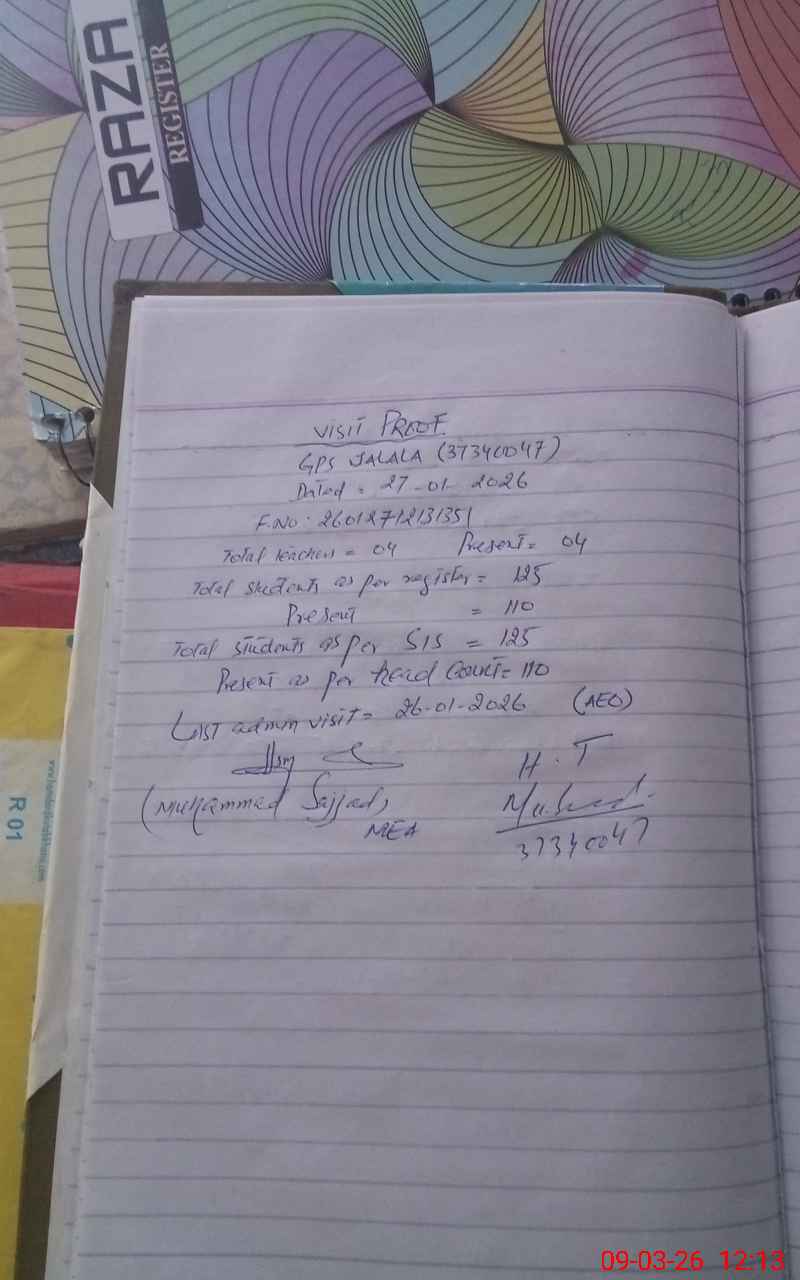 RAZA
REGISTER
VISIT PROOF
GPS JALALA (37340047)
Dated = 27-01-2026
F.NO: 26012712131351
Total teachers = 04 Present = 04
Total students as per register = 125
Present = 110
Total students as per SIS = 125
Present as per head Count = 110
Last admn visit = 26-01-2026 (AEO)
(Muhammad Sajjad)
MEA
H.T
37340047
R 01
09-03-26 12:13